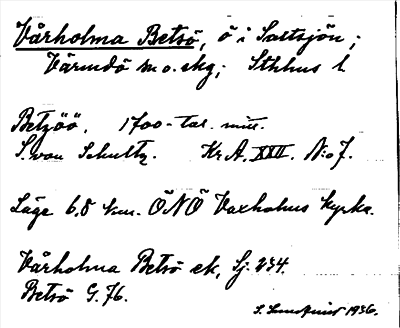 Vårholma Betsö, ö i Saltsjön;
Värmdö m o. skg; Sthlms l.
Betzöö. 1700-tal. mitt.
S. von Schultz. Kr A. XXII. N:o 7.
Läge 6,8 km. ÖNÖ Vaxholms kyrka.
Vårholma Betsö ek, Sj. 234.
Betsö G. 76.
S. 1936.